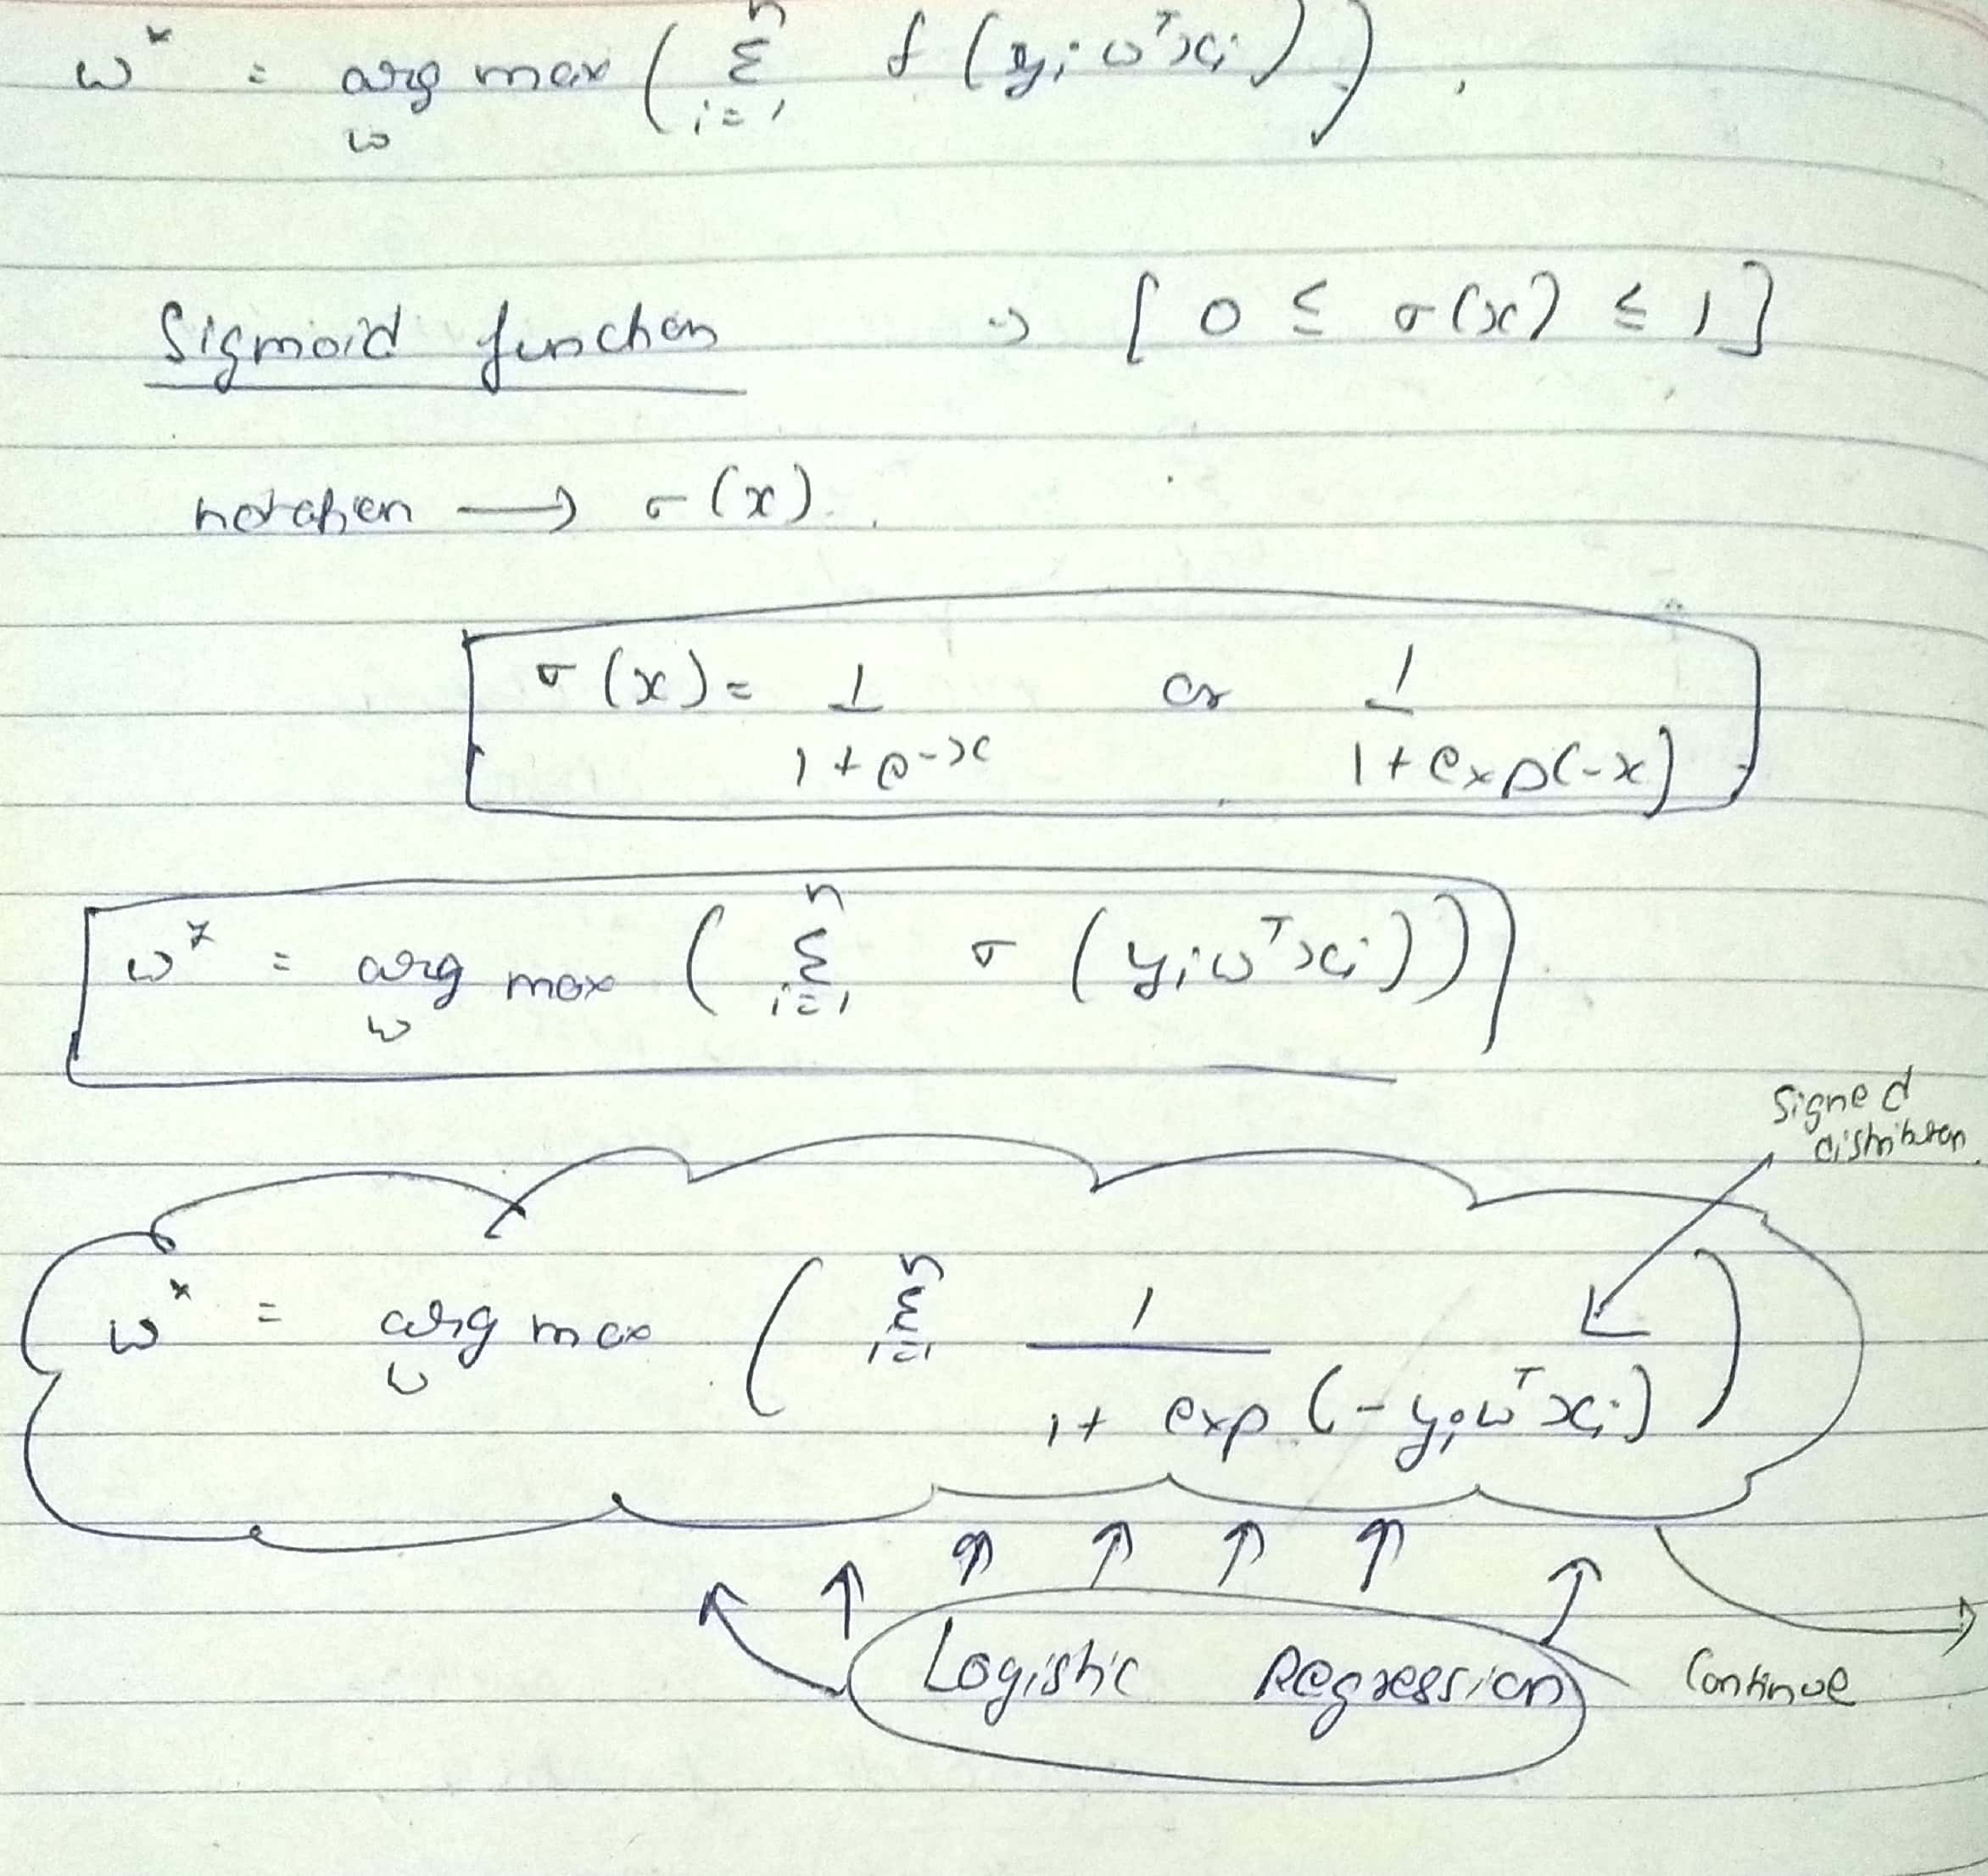 w* = arg max ( Σ f (yi wᵀxi) ) .
w i=1 n
Sigmoid function → [ 0 ≤ σ(x) ≤ 1 ]
notation → σ(x).
σ(x) = 1 / (1 + e^-x) or 1 / (1 + exp(-x))
w* = arg max ( Σ σ (yi wᵀxi) )
w i=1 n
Signed
distribution.
w* = arg max ( Σ 1 / (1 + exp (-yi wᵀxi)) )
w i=1 n
Logistic Regression
Continue